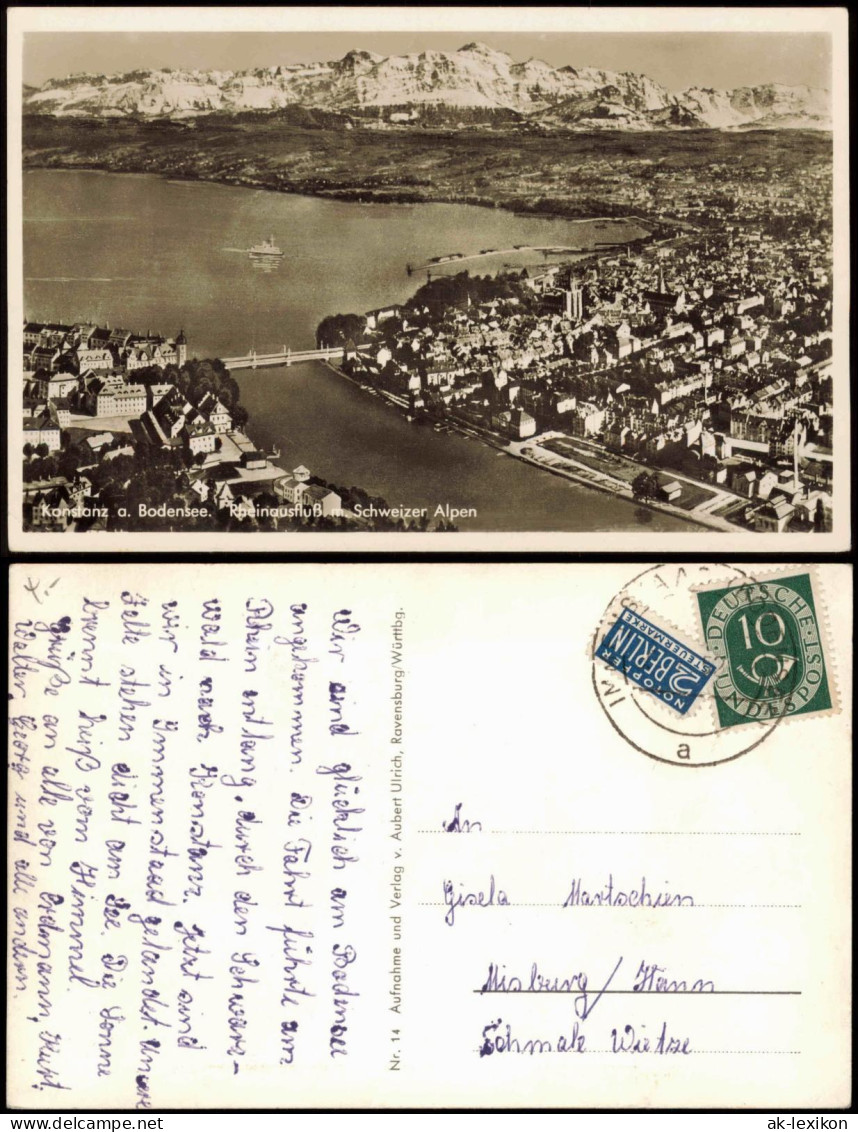 Konstanz a. Bodensee. Rheinausfluß m. Schweizer Alpen
Wir sind glücklich am Bodensee
angekommen. Die Fahrt führte am
Rhein entlang, durch den Schwarz-
wald nach Konstanz. Jetzt sind
wir in Immenstaad gelandet. Unsere
Zelte stehen dicht am See. Die Sonne
brennt heiß vom Himmel.
Grüße an alle von Erdmann, Kurt,
Walter, Georg und all andern.
Nr. 14 Aufnahme und Verlag v. Aubert Ulrich, Ravensburg/Württbg.
NOTOPFER
2 BERLIN
STEUERMARKE
DEUTSCHE
10
BUNDESPOST
IM
a
An
Gisela Martschien
Misburg/Hann
Schmale Wietze
© ak-ansichtskarten.de
ak-lexikon